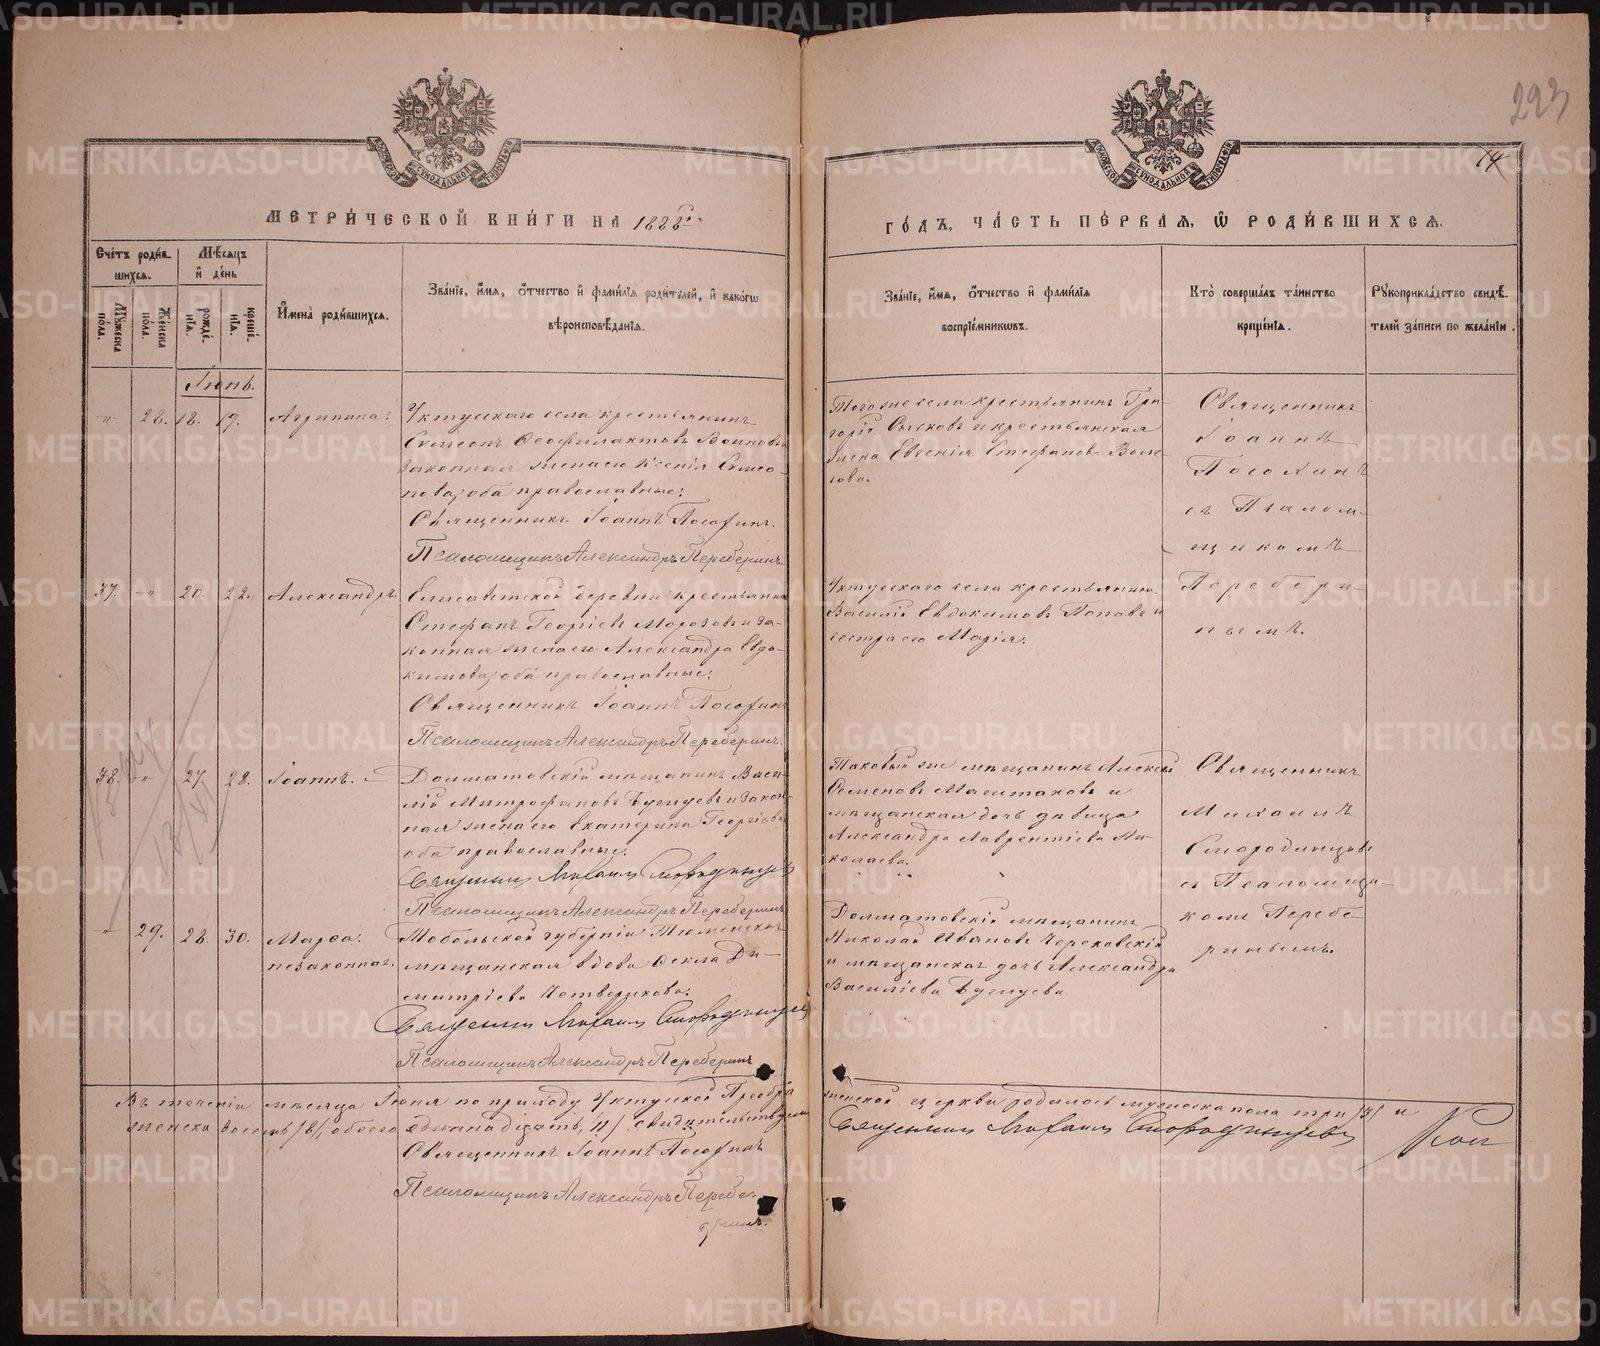 293
14
МЕТРИЧЕСКОЙ КНИГИ НА 1888й
ГОДЪ, ЧАСТЬ ПЕРВАЯ, Ѡ РОДИВШИХСЯ.
Счетъ родившихся.
Мужеска пола.
Женска пола.
Мѣсяцъ и день
рожденія.
крещенія.
Имена родившихся.
Званіе, имя, отчество и фамилія родителей, и какогѡ вѣроисповѣданія.
Званіе, имя, отчество и фамилія воспріемниковъ.
Кто совершалъ таинство крещенія.
Рукоприкладство свидѣтелей записи по желанію.
Іюнь.
" 28. 18. 19. Агрипина.
Уктусскаго села крестьянинъ
Симеонъ Ѳеофилактовъ Воиновъ и
законная жена его Ксенія Симео-
нова; оба православные.
Священникъ Іоаннъ
Псаломщикъ Александръ Переберинъ.
Того же села крестьянинъ Гри-
горій и крестьянская
жена Евгенія Стефанова
Священникъ
Іоаннъ
съ Псалом-
щикомъ
Перебери-
нымъ.
37. " 20. 22. Александръ
Елисаветской деревни крестьянинъ
Стефанъ Георгіевъ Морозовъ и за-
конная жена его Александра Евдо-
кимова; оба православные.
Священникъ Іоаннъ
Псаломщикъ Александръ Переберинъ.
Уктусскаго села крестьянинъ
Василій Евдокимовъ Поповъ и
сестра его Марія.
38. " 27. 28. Іоаннъ.
Долматовскій мѣщанинъ Васи-
лій Митрофановъ и закон-
ная жена его Екатерина Георгіева
оба православные.
Священникъ Михаилъ Смородинцевъ
Псаломщикъ Александръ Переберинъ
Таковый же мѣщанинъ Алексій
Семеновъ и
мѣщанская дочь дѣвица
Александра Лаврентіева Ни-
колаева.
Священникъ
Михаилъ
Смородинцевъ
съ Псаломщи-
комъ Перебе-
ринымъ.
" 29. 28. 30. Марѳа.
незаконная.
Тобольской губерніи Тюменская
мѣщанская вдова Ѳекла Ди-
митріева Четверикова.
Священникъ Михаилъ Смородинцевъ
Псаломщикъ Александръ Переберинъ
Долматовскій мѣщанинъ
Николай Ивановъ
и мѣщанская дочь Александра
Васильева
Въ теченіи мѣсяца Іюня по приходу Уктусской Преобра
женской церкви родилось мужеска пола три /3/ и
женска восемь /8/, обоего одинадцать, /11/. свидѣтельствуемъ
Священникъ Михаилъ Смородинцевъ
Священникъ Іоаннъ
Псаломщикъ Александръ Перебе-
ринъ.
METRIKI.GASO-URAL.RU